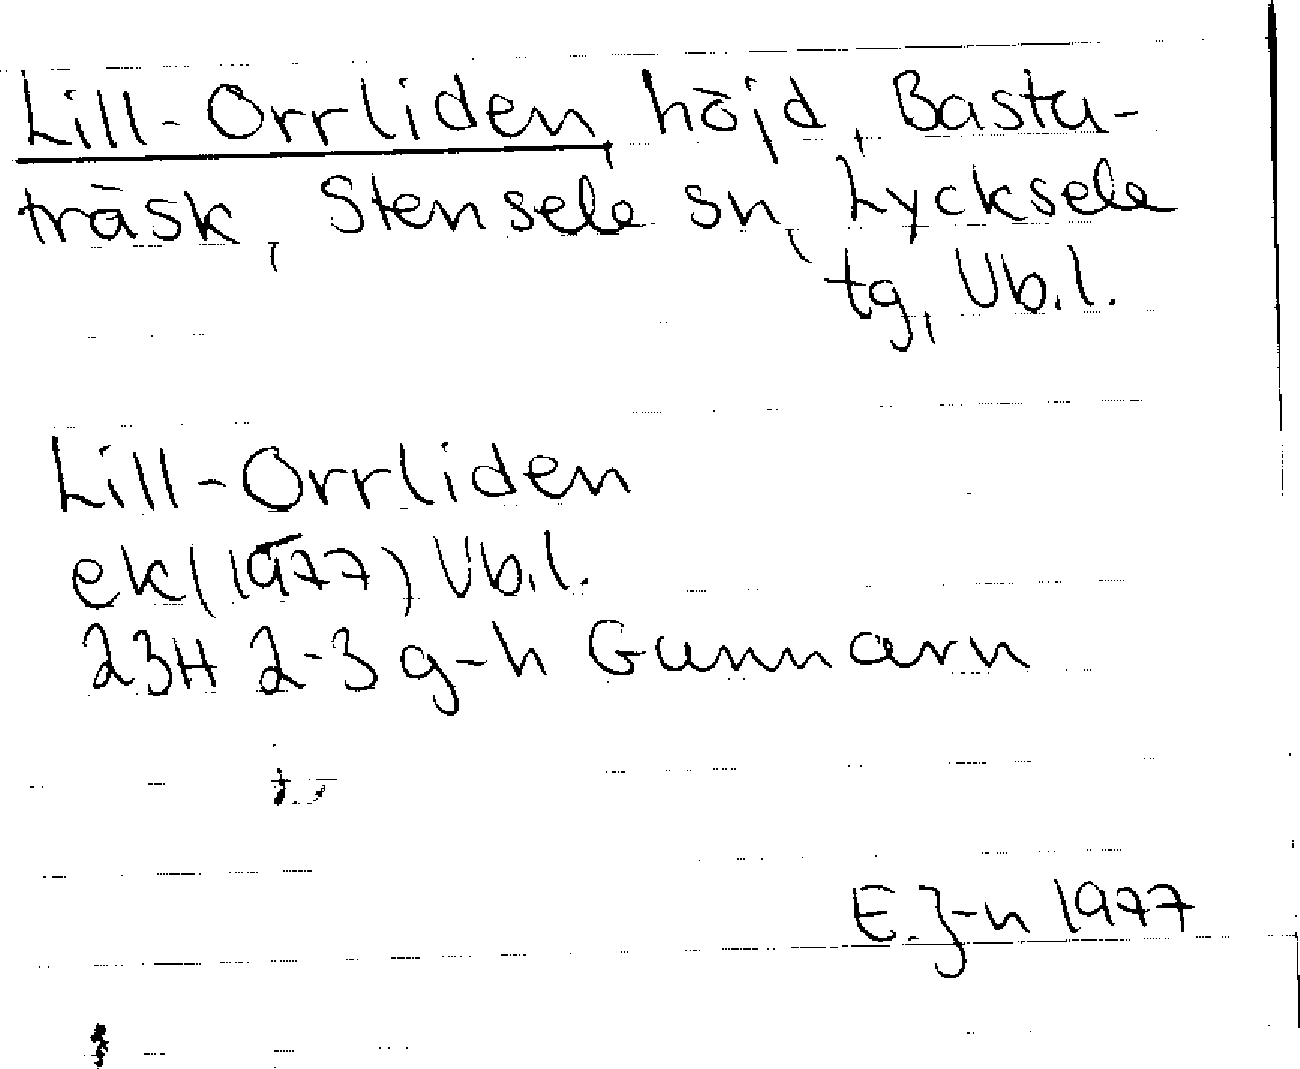 Lill-Orrliden, höjd, Bastu-
träsk, Stensele sn, Lycksele
tg, Vb.l.
Lill-Orrliden
ek(1977) Vb.l.
23H 2-3 g-h Gunnarn
E.J-n 1977